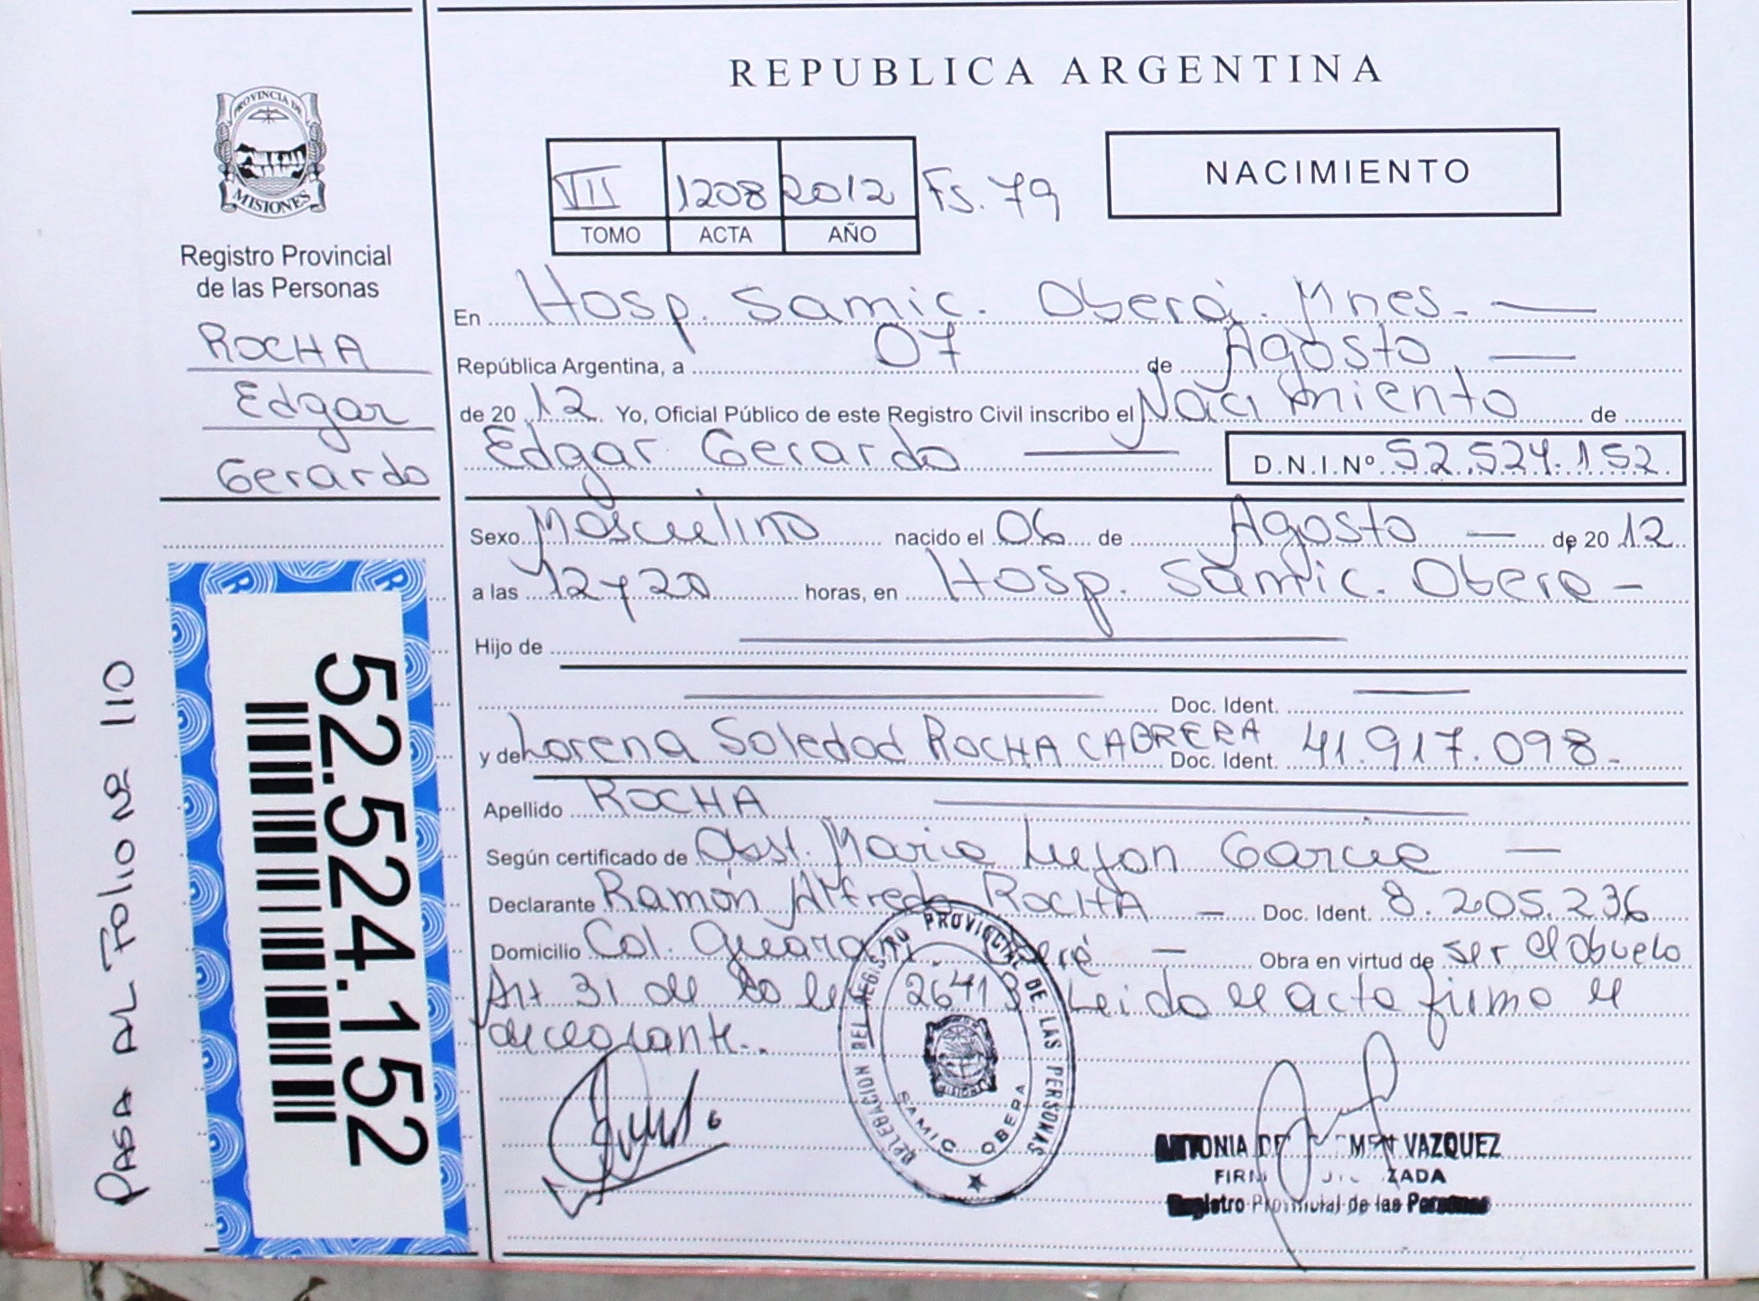 REPUBLICA ARGENTINA
PROVINCIA DE
MISIONES
Registro Provincial
de las Personas
ROCHA
Edgar
Gerardo
VII 1208 2012 Fs. 79
TOMO ACTA AÑO
NACIMIENTO
En Hosp. Samic. Oberá. Mnes.
República Argentina, a 07 de Agosto
de 2012 Yo, Oficial Público de este Registro Civil inscribo el Nacimiento de
Edgar Gerardo D.N.I.Nº 52.524.152
Sexo Masculino nacido el 06 de Agosto de 2012
a las 12 y 20 horas, en Hosp. Samic. Obera
Hijo de
Doc. Ident.
y de Lorena Soledad ROCHA CABRERA Doc. Ident. 41.917.098
Apellido ROCHA
Según certificado de Obst. Maria Lujan Garcia
Declarante Ramón Alfredo ROCHA Doc. Ident. 8.205.236
Domicilio Col. Guarani Obra en virtud de ser el abuelo
Art 31 de la ley 26413 Leido el acta firma el
declarante.
DELEGACION DEL REGISTRO PROVINCIAL DE LAS PERSONAS
SAMIC OBERA
VAZQUEZ
Registro Provincial de las Personas
PASA AL FOLIO Nº 110
52.524.152